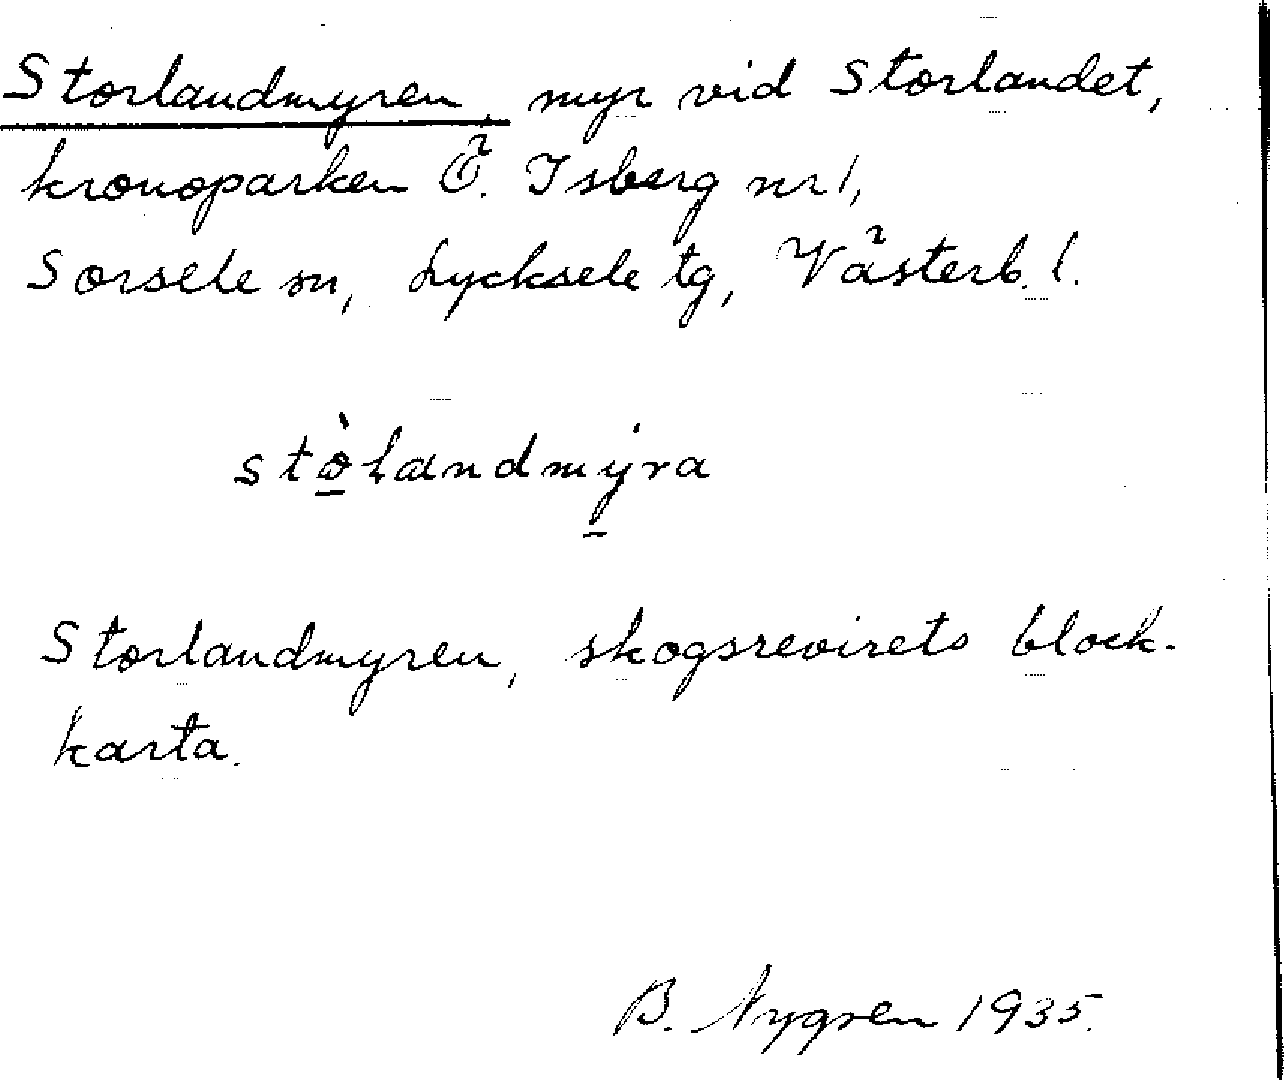 Storlandmyren, myr vid Storlandet,
kronoparken Ö. Isberg nr 1,
Sorsele sn, Lycksele tg, Västerb. l.
stò̠landmẏ̠ra
Storlandmyren, skogsrevirets block-
karta.
B. Nygren 1935.